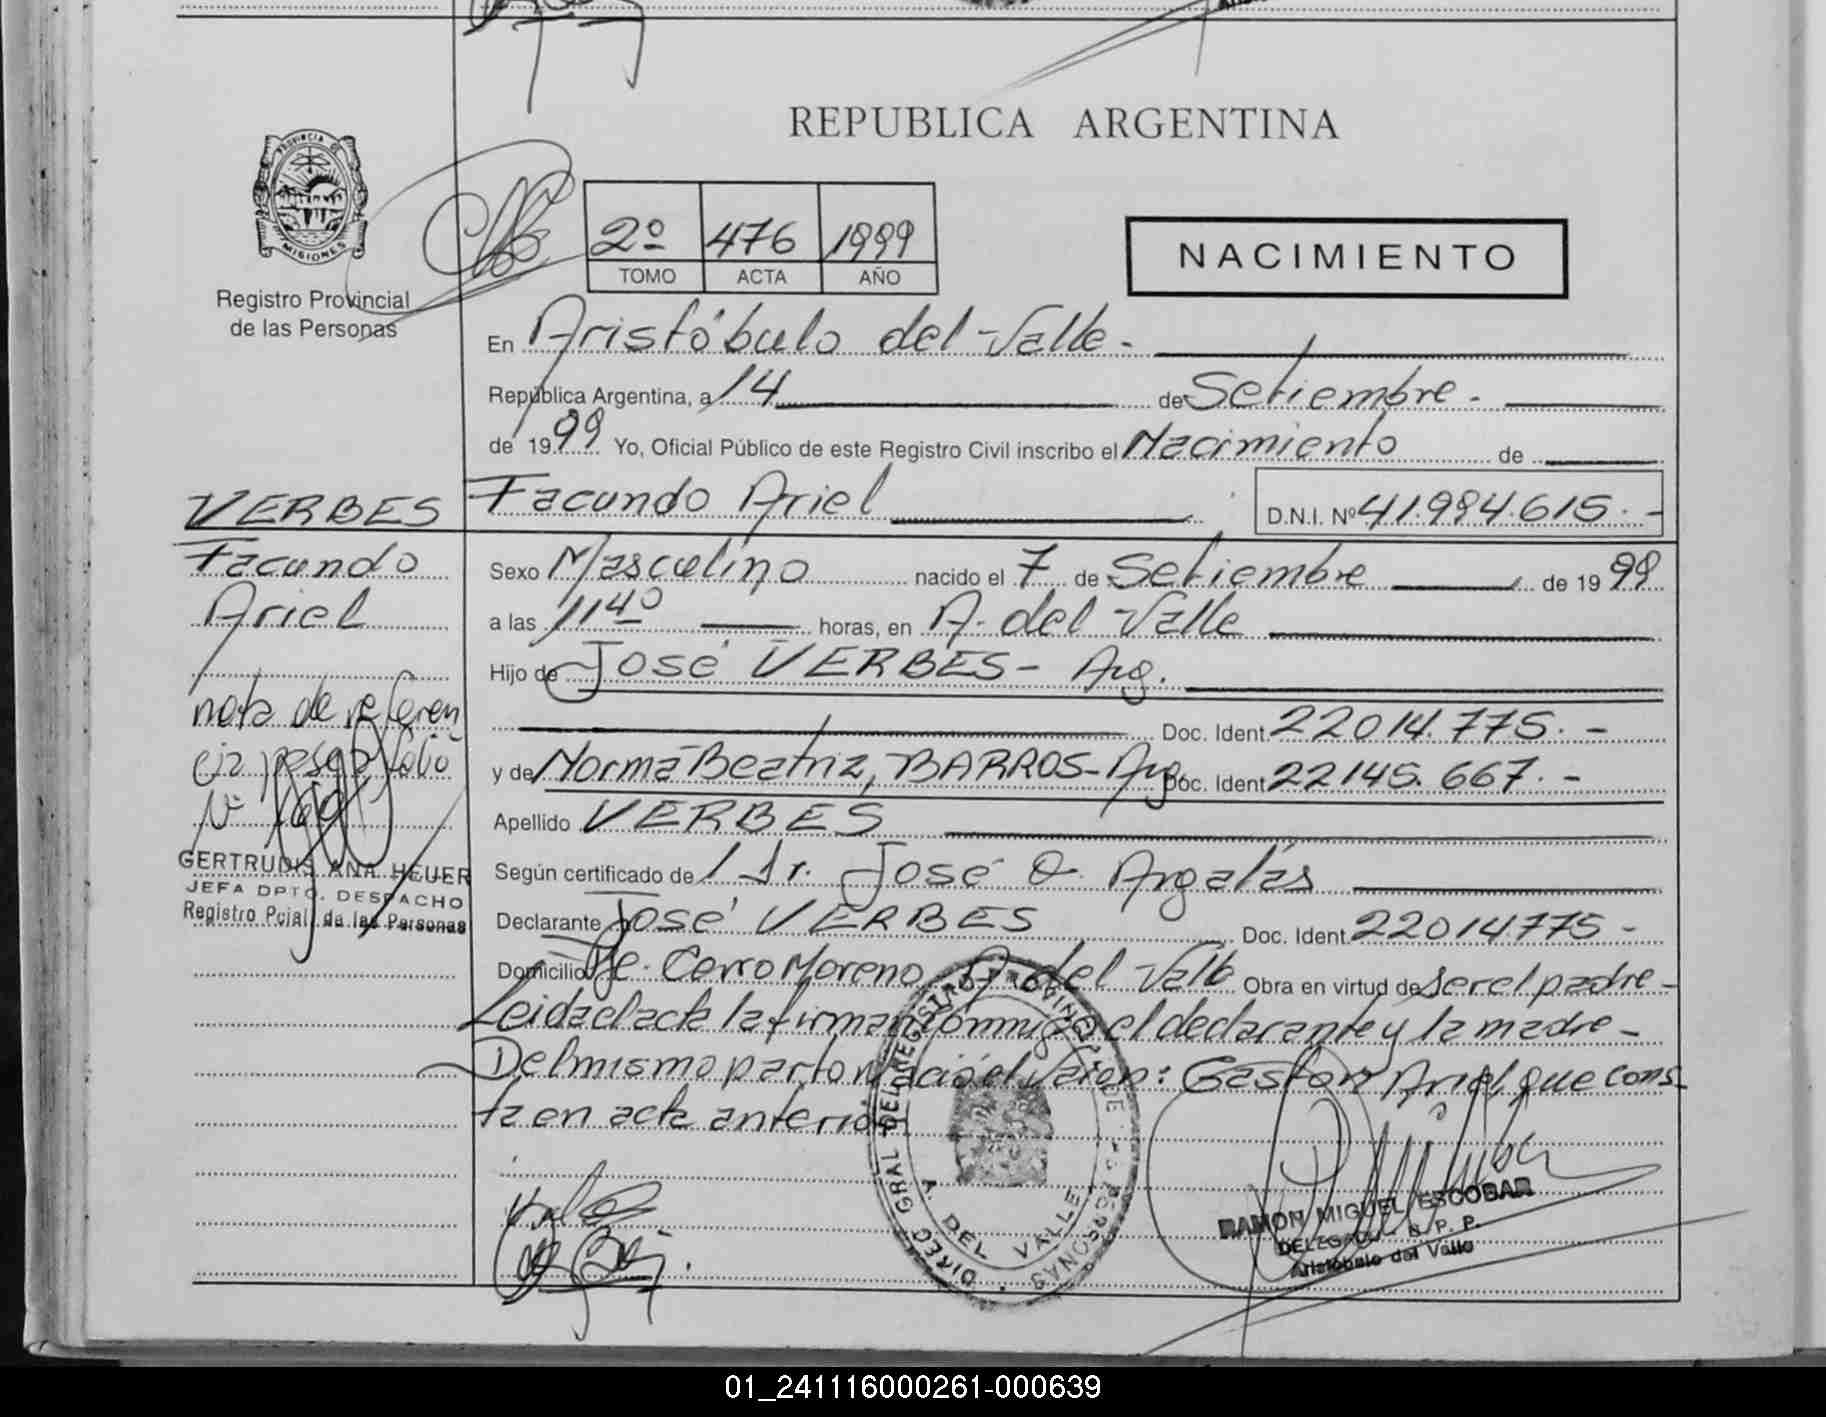 REPUBLICA ARGENTINA
PROVINCIA DE
MISIONES
Registro Provincial
de las Personas
2º 476 1999
TOMO ACTA AÑO
NACIMIENTO
En Aristóbulo del Valle.
República Argentina, a 14 de Setiembre.
de 1999 Yo, Oficial Público de este Registro Civil inscribo el Nacimiento de
Facundo Ariel D.N.I. Nº 41.984.615.-
VERBES
Facundo
Ariel
nota de referen
cia pasa a folio
Nº
GERTRUDIS ANA HEUER
JEFA DPTO. DESPACHO
Registro Pcial. de las Personas
Sexo Masculino nacido el 7 de Setiembre de 1999
a las 11 40 horas, en A. del Valle
Hijo de José VERBES - Arg.
Doc. Ident. 22014.775.-
y de Norma Beatriz, BARROS - Arg. Doc. Ident. 22145.667.-
Apellido VERBES
Según certificado de / Dr. José O. Argalas
Declarante José VERBES Doc. Ident. 22014775 -
Domicilio Pje. Cerro Moreno A. del Valle Obra en virtud de ser el padre -
Leida el acta la firman conmigo el declarante y la madre -
Del mismo parto nació el varon: Gaston Ariel, que cons
ta en acta anterior
DIREC. GRAL DEL REGISTRO PROVINCIAL DE LAS PERSONAS
A. DEL VALLE
RAMON MIGUEL ESCOBAR
DELEGADO R. P. P.
Aristóbulo del Valle
01_241116000261-000639